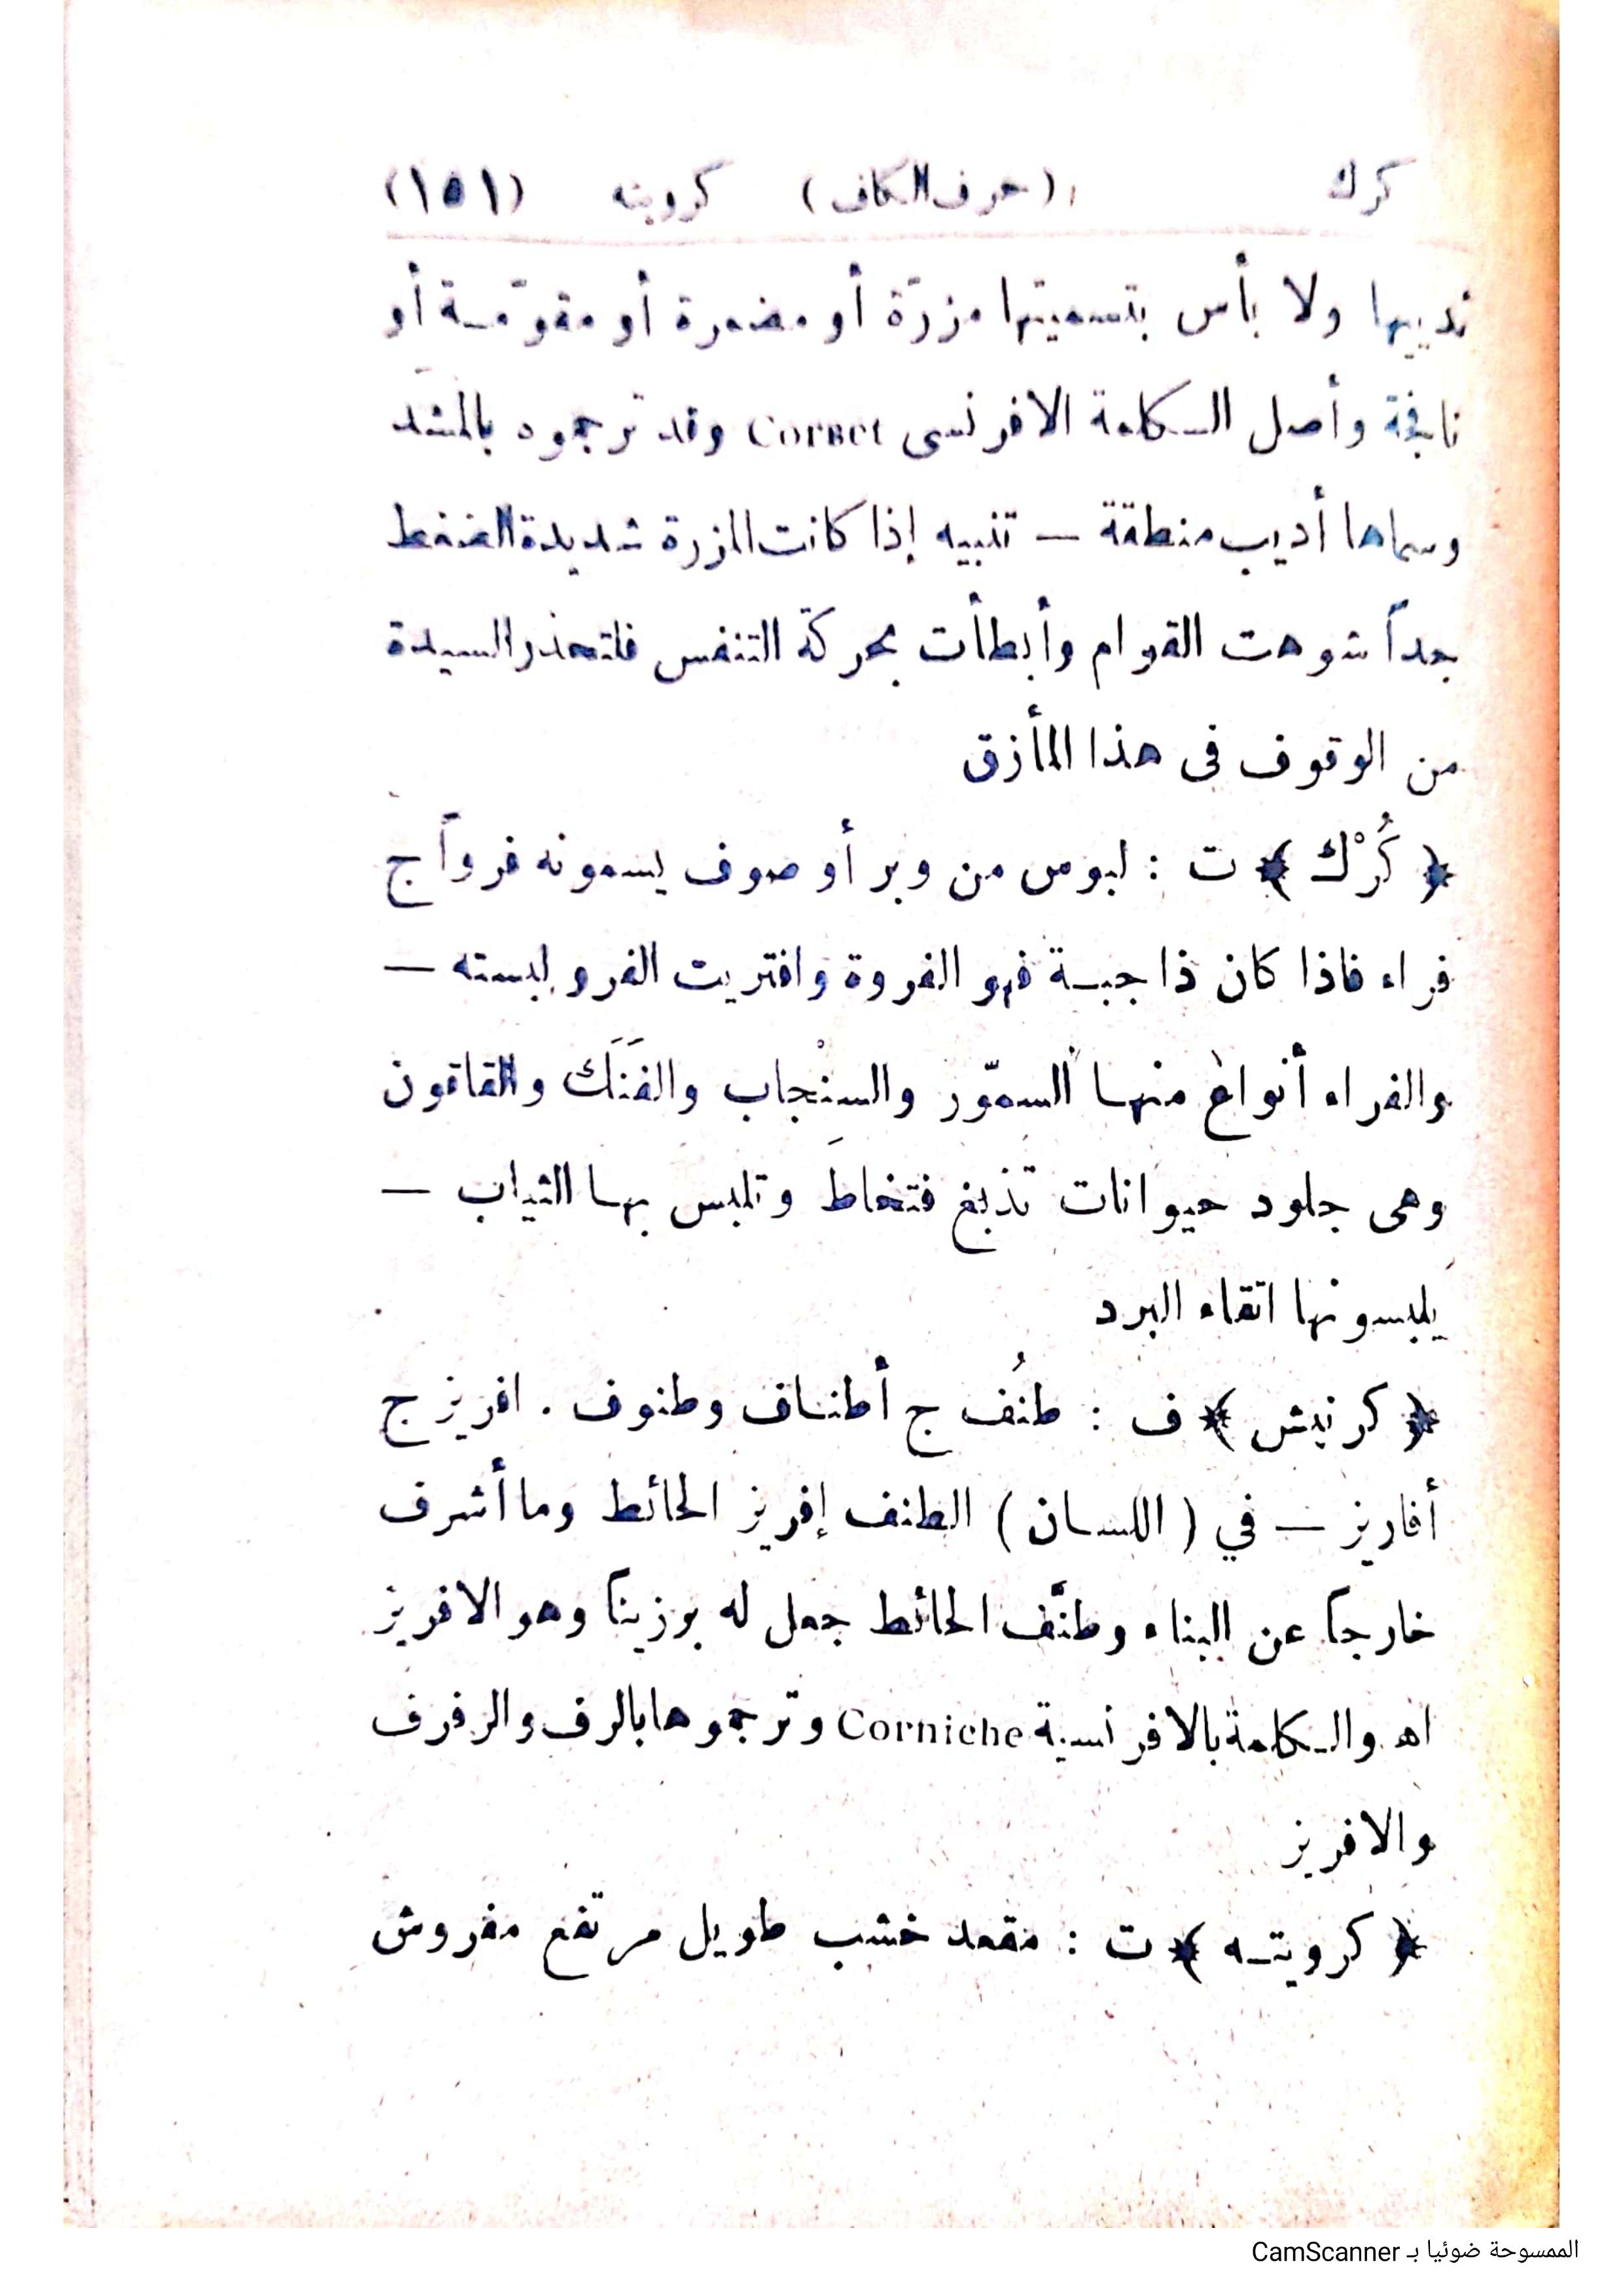 كرك (حرف الكاف) كرويته (١٥١)
ثدييها ولا بأس بتسميتها مزرّة أو مضمرة أو مقوّمة أو
نافجة وأصل الكلمة الافرنسى Corset وقد ترجموه بالمشدّ
وسماها أديب منطقة — تنبيه إذا كانت المزرة شديدة الضغط
جداً شوهت القوام وأبطأت بحركة التنفس فلتحذر السيدة
من الوقوف فى هذا المأزق
﴿ كُرْك ﴾ ت : لبوس من وبر أو صوف يسمونه فرواً ج
فراء فاذا كان ذا جبة فهو الفروة وافتريت الفرو لبسته —
والفراء أنواع منها السمّور والسِنْجاب والفَنَك والقاقون
وهى جلود حيوانات تدبغ فتخاط وتلبس بها الثياب —
يلبسونها اتقاء البرد
﴿ كرنيش ﴾ ف : طنُف ج أطناف وطنوف . افريز ج
أفاريز — في ( اللسان ) الطنف إفريز الحائط وما أشرف
خارجاً عن البناء وطنَّف الحائط جعل له برزيناً وهو الافريز
اهـ والكلمة بالافرنسية Corniche وترجموها بالرف والرفرف
والافريز
﴿ كرويته ﴾ ت : مقعد خشب طويل مرتفع مفروش
الممسوحة ضوئيا بـ CamScanner